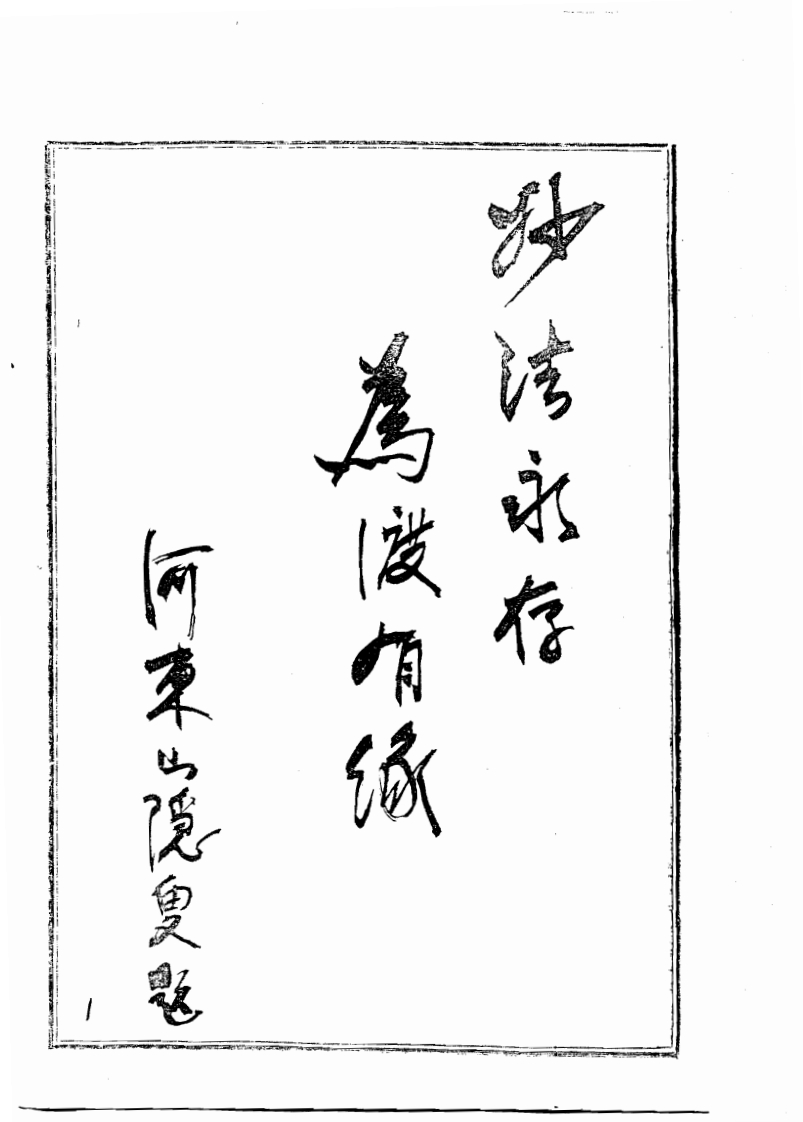 妙法永存
為渡有緣
河東山隱叟題
1